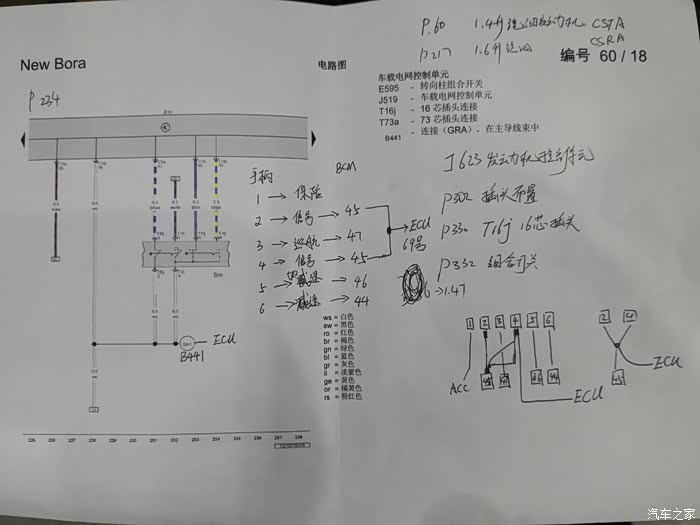 P.60 1.4升 CSTA
CSRA
P217 1.6升
New Bora
电路图
编号 60 / 18
P 234
车载电网控制单元
E595 - 转向柱组合开关
J519 - 车载电网控制单元
T16j - 16 芯插头连接
T73a - 73 芯插头连接
B441 - 连接（GRA），在主导线束中
J623 发动机控制单元
P302 插头布置
P330 T16j 16芯插头
P332 组合开关
手柄 BCM
1 → 保险
2 → 信号 → 45
3 → 巡航 → 47
4 → 信号 → 45
5 → 加速 → 46
6 → 减速 → 44
→ ECU
69号
6→1.47
B441
ECU
ws = 白色
sw = 黑色
ro = 红色
br = 褐色
gn = 绿色
bl = 蓝色
gr = 灰色
li = 淡紫色
ge = 黄色
or = 橘黄色
rs = 粉红色
1 2 3 4 5 6
45 47 46 44
ACC
ECU
2
45
ECU
225 226 227 228 229 230 231 232 233 234 235 236 237 238
汽车之家